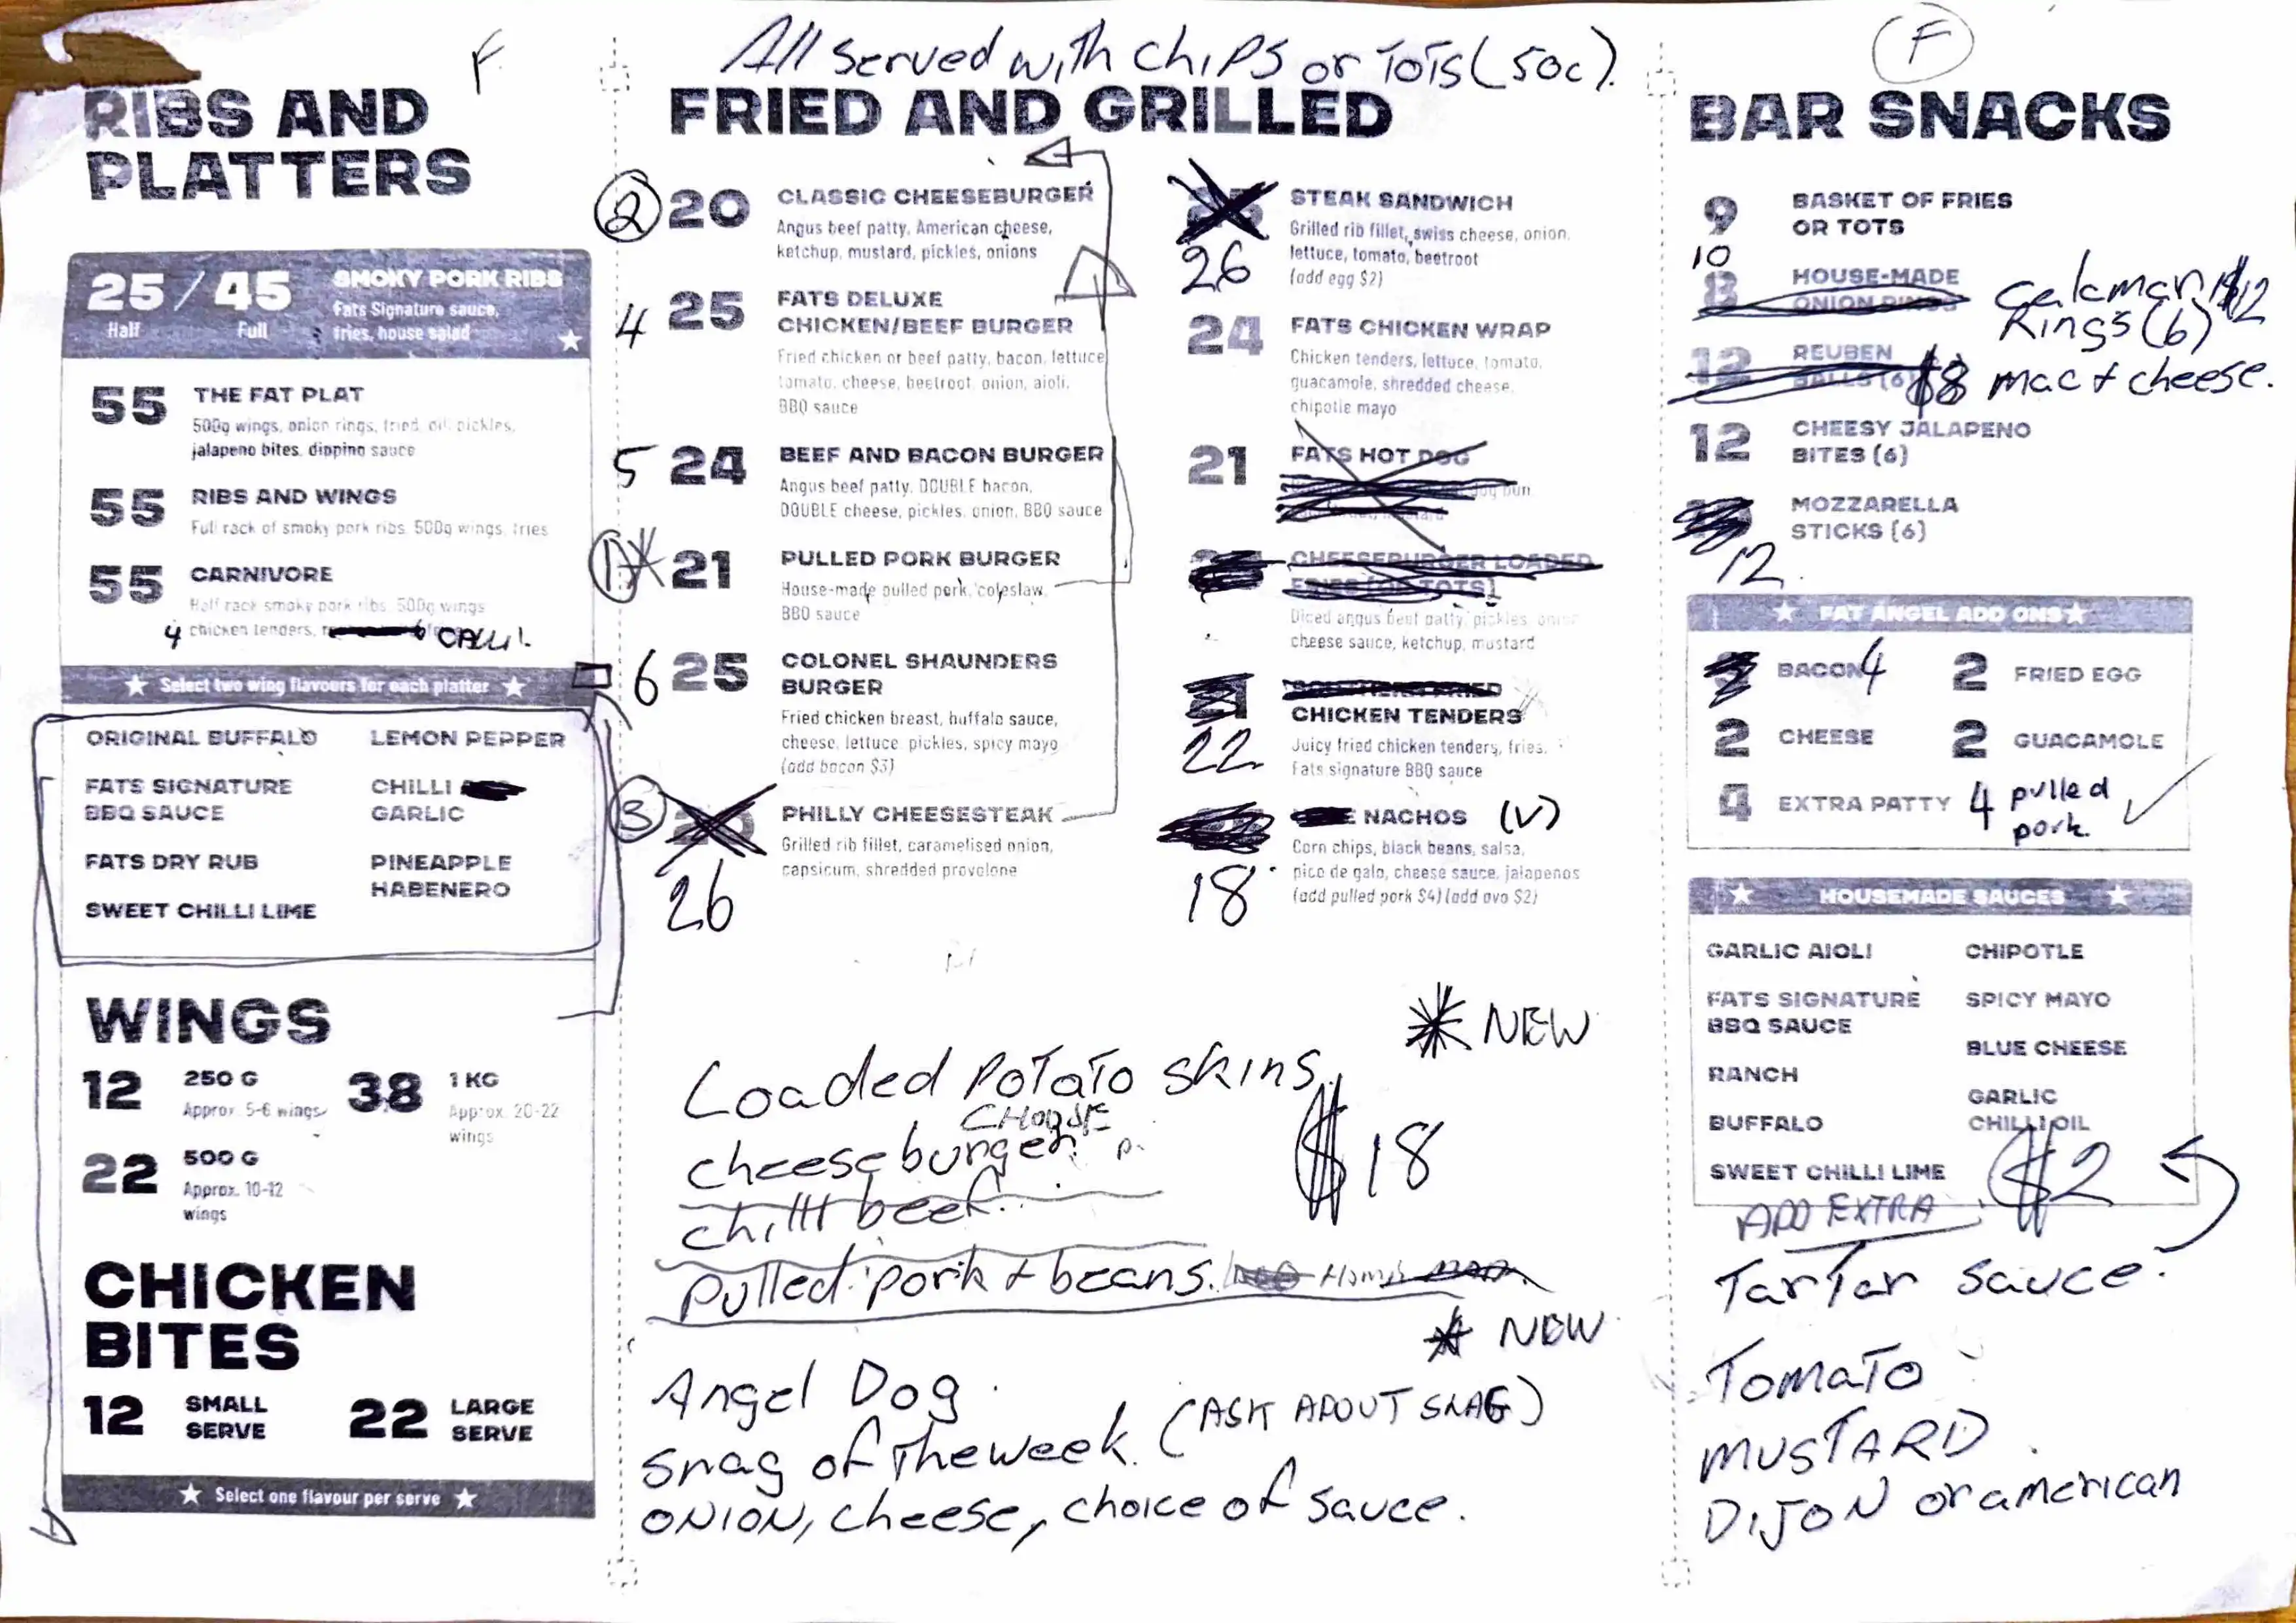 F
RIBS AND
PLATTERS
25 / 45
Half Full
SMOKY PORK RIBS
Fats Signature sauce,
fries, house salad
55 THE FAT PLAT
500g wings, onion rings, fried dill pickles,
jalapeno bites, dipping sauce
55 RIBS AND WINGS
Full rack of smoky pork ribs, 500g wings, fries
55 CARNIVORE
Half rack smoky pork ribs, 500g wings
4 chicken tenders,
Select two wing flavours for each platter
ORIGINAL BUFFALO
FATS SIGNATURE
BBQ SAUCE
FATS DRY RUB
SWEET CHILLI LIME
LEMON PEPPER
CHILLI
GARLIC
PINEAPPLE
HABENERO
WINGS
12 250 G
Approx. 5-6 wings
38 1 KG
Approx. 20-22
wings
22 500 G
Approx. 10-12
wings
CHICKEN
BITES
12 SMALL
SERVE
22 LARGE
SERVE
Select one flavour per serve
All served with chips or ToTs (50c).
FRIED AND GRILLED
2 20 CLASSIC CHEESEBURGER
Angus beef patty, American cheese,
ketchup, mustard, pickles, onions
4 25 FATS DELUXE
CHICKEN/BEEF BURGER
Fried chicken or beef patty, bacon, lettuce
tomato, cheese, beetroot, onion, aioli,
BBQ sauce
5 24 BEEF AND BACON BURGER
Angus beef patty, DOUBLE bacon,
DOUBLE cheese, pickles, onion, BBQ sauce
1 * 21 PULLED PORK BURGER
House-made pulled pork, coleslaw,
BBQ sauce
6 25 COLONEL SHAUNDERS
BURGER
Fried chicken breast, buffalo sauce,
cheese, lettuce, pickles, spicy mayo
(add bacon $3)
3 PHILLY CHEESESTEAK
26
Grilled rib fillet, caramelised onion,
capsicum, shredded provolone
STEAK SANDWICH
26
Grilled rib fillet, swiss cheese, onion,
lettuce, tomato, beetroot
(add egg $2)
24 FATS CHICKEN WRAP
Chicken tenders, lettuce, tomato,
guacamole, shredded cheese,
chipotle mayo
21 FATS HOT DOG
dog bun
CHEESEBURGER LOADED
FRIES (OR TOTS)
Diced angus beef patty, pickles, onion
cheese sauce, ketchup, mustard
SOUTHERN FRIED
CHICKEN TENDERS
22
Juicy fried chicken tenders, fries,
Fats signature BBQ sauce
NACHOS (V)
18
Corn chips, black beans, salsa,
pico de galo, cheese sauce, jalapenos
(add pulled pork $4) (add avo $2)
* NEW
Loaded PoTaTo skins.
CHOOSE
cheese burger.
chilli beef.
$18
Pulled pork + beans.
* NEW
Angel Dog
Snag of The week. (ASK ABOUT SNAG)
ONION, cheese, choice of sauce.
F
BAR SNACKS
9 BASKET OF FRIES
OR TOTS
10
8 HOUSE-MADE
ONION RINGS
Calamari $12
Rings (6)
12 REUBEN
BALLS (6)
$8 mac + cheese.
12 CHEESY JALAPENO
BITES (6)
MOZZARELLA
STICKS (6)
12
FAT ANGEL ADD ONS
BACON 4
2 FRIED EGG
2 CHEESE
2 GUACAMOLE
4 EXTRA PATTY
4 pulled
pork.
HOUSEMADE SAUCES
GARLIC AIOLI
FATS SIGNATURE
BBQ SAUCE
RANCH
BUFFALO
SWEET CHILLI LIME
CHIPOTLE
SPICY MAYO
BLUE CHEESE
GARLIC
CHILLI OIL
$2
ADD EXTRA
TarTar sauce.
TomaTo
MUSTARD
DIJON or american